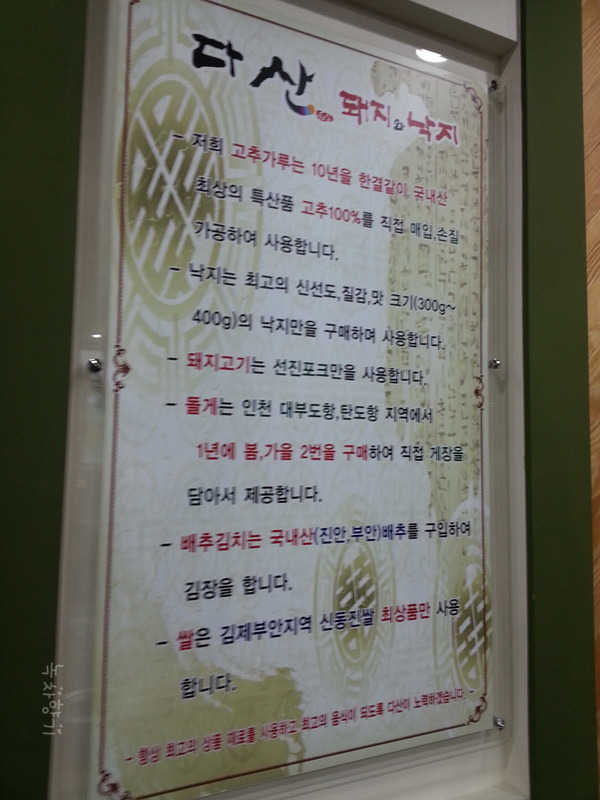 다산 돼지와 낙지
- 저희 고추가루는 10년을 한결같이 국내산
최상의 특산품 고추100%를 직접 매입,손질
가공하여 사용합니다.
- 낙지는 최고의 신선도,질감,맛 크기(300g~
400g)의 낙지만을 구매하며 사용합니다.
- 돼지고기는 선진포크만을 사용합니다.
- 돌게는 인천 대부도항,탄도항 지역에서
1년에 봄,가을 2번을 구매하여 직접 게장을
담아서 제공합니다.
- 배추김치는 국내산(진안,부안)배추를 구입하여
김장을 합니다.
- 쌀은 김제부안지역 신동진쌀 최상품만 사용
합니다.
- 항상 최고의 상품 재료를 사용하고 최고의 음식이 되도록 다산이 노력하겠습니다. -
녹차향기